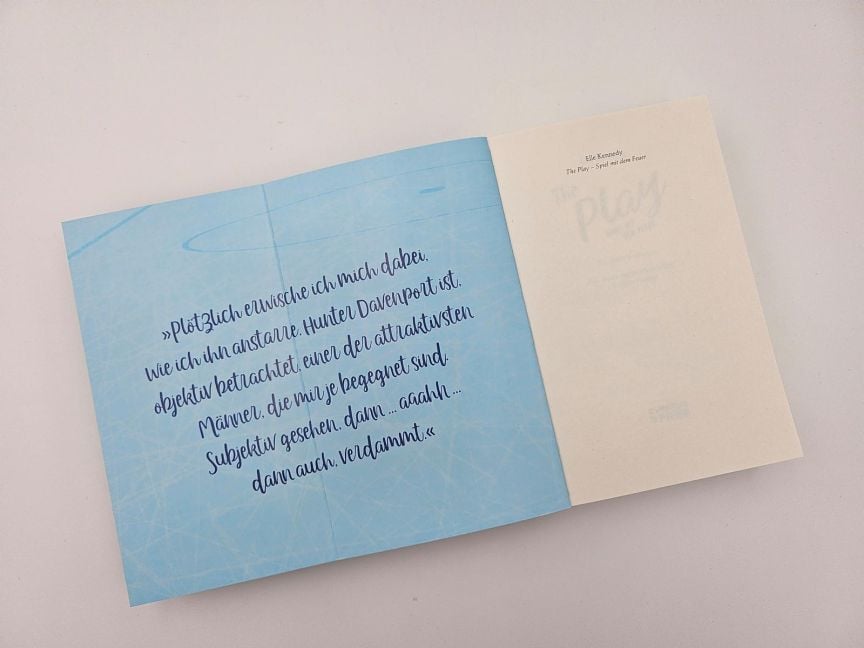 »Plötzlich erwische ich mich dabei,
wie ich ihn anstarre. Hunter Davenport ist,
objektiv betrachtet, einer der attraktivsten
Männer, die mir je begegnet sind.
Subjektiv gesehen, dann ... aaahh ...
dann auch, verdammt.«
Elle Kennedy
The Play – Spiel mit dem Feuer
The
play